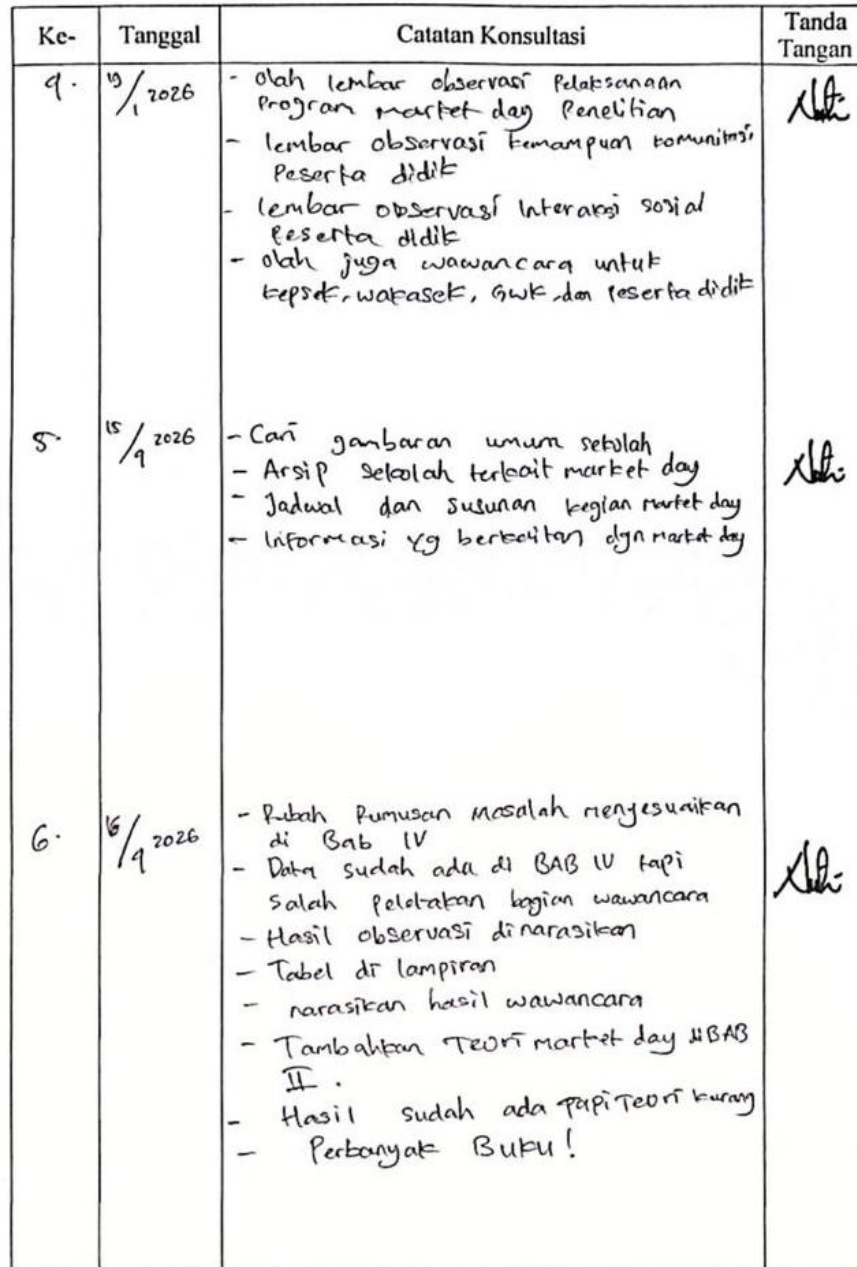 Ke- Tanggal Catatan Konsultasi Tanda Tangan
4. 19/1 2026 - olah lembar observasi Pelaksanaan
Program market day Penelitian
- lembar observasi kemampuan komunikasi
Peserta didik
- lembar observasi Interaksi sosial
Peserta didik
- olah juga wawancara untuk
kepsek, wakasek, GWK, dan Peserta didik
5. 15/4 2026 - Cari gambaran umum sekolah
- Arsip Sekolah terkait market day
- Jadwal dan Susunan kegian market day
- Informasi yg berkaitan dgn market day
6. 16/4 2026 - Rubah Rumusan Masalah menyesuaikan
di Bab IV
- Data sudah ada di BAB IV tapi
Salah peletakan bagian wawancara
- Hasil observasi di narasikan
- Tabel di lampiran
- narasikan hasil wawancara
- Tambahkan Teori market day di BAB
II.
- Hasil sudah ada tapi Teori kurang
- Perbanyak Buku!